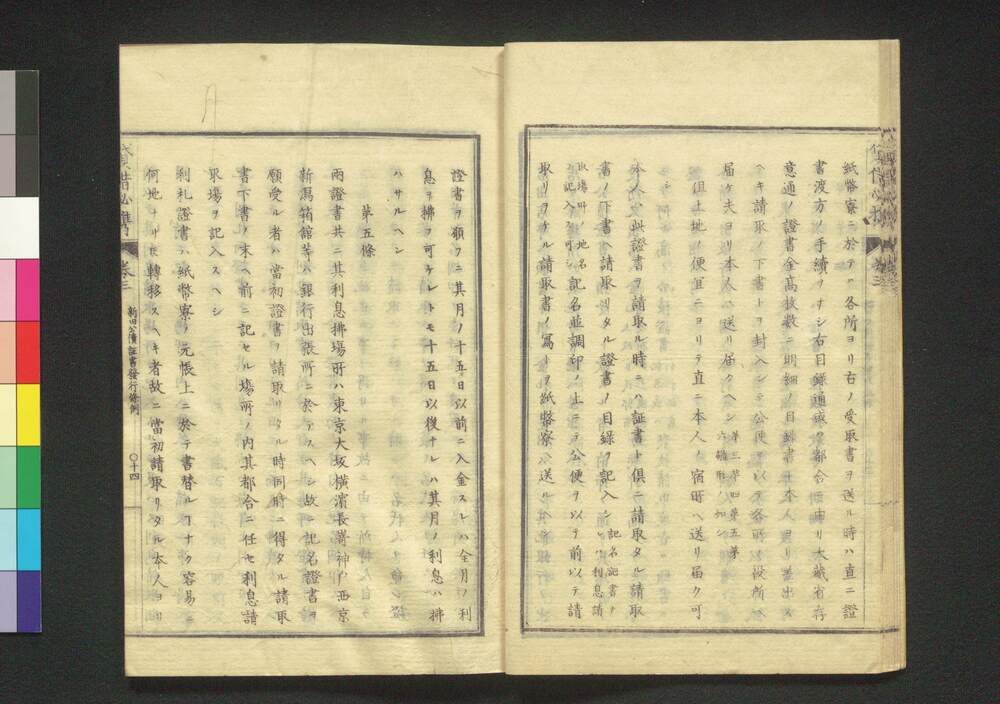 紙幣寮ニ於テハ各所ヨリ右ノ受取書ヲ送ル時ハ直ニ證
書渡方ノ手續ヲナシ右目録通或ハ都合
意通ノ證書金高枚數ニ明細ノ目録書ト本人ヨリ差出ス
ヘキ請取ノ下書トヲ封入シテ公使ヲ以テ各所ノ役所ヘ
届ケ夫ヨリ本人ヘ送リ届クヘシ
但土地ノ便宜ニヨリテ直ニ本人ノ宿所ヘ送リ届ク可
シ
本人ハ此證書ヲ請取ル時ニハ証書ト俱ニ請取タル請取
書ノ下書ヘ請取リタル證書ノ目録ヲ記入シ
記名並調印ノ上ニテ公便ヲ以テ前以テ請
取リタル請取書ノ寫トヲ紙幣寮ヘ送ルヘシ
證書ヲ願フニ其月ノ十五日以前ニ入金スレハ全月ノ利
息ヲ拂フ可ケレトモ十五日以後ナレハ其月ノ利息ハ拂
ハサルヘシ
第五條
兩證書共ニ其利息拂場所ハ東京大坂横濱長嵜神戸西京
新潟箱館等ハ銀行出張所ニ於テスヘシ故ニ記名證書ヲ
願受ル者ハ當初證書ヲ請取リタル時同時ニ得タル請取
書下書ノ末ヘ前ニ記セル場所ノ内其都合ニ任セ利息請
取場ヲ記入スヘシ
利札證書ハ紙幣寮ノ元帳上ニ於テ書替ルコナク容易ニ
何地ナリトモ轉移スヘキ者故ニ當初請取リタル本人ヨリ
卷三
新旧公債証書發行條例
〇十四